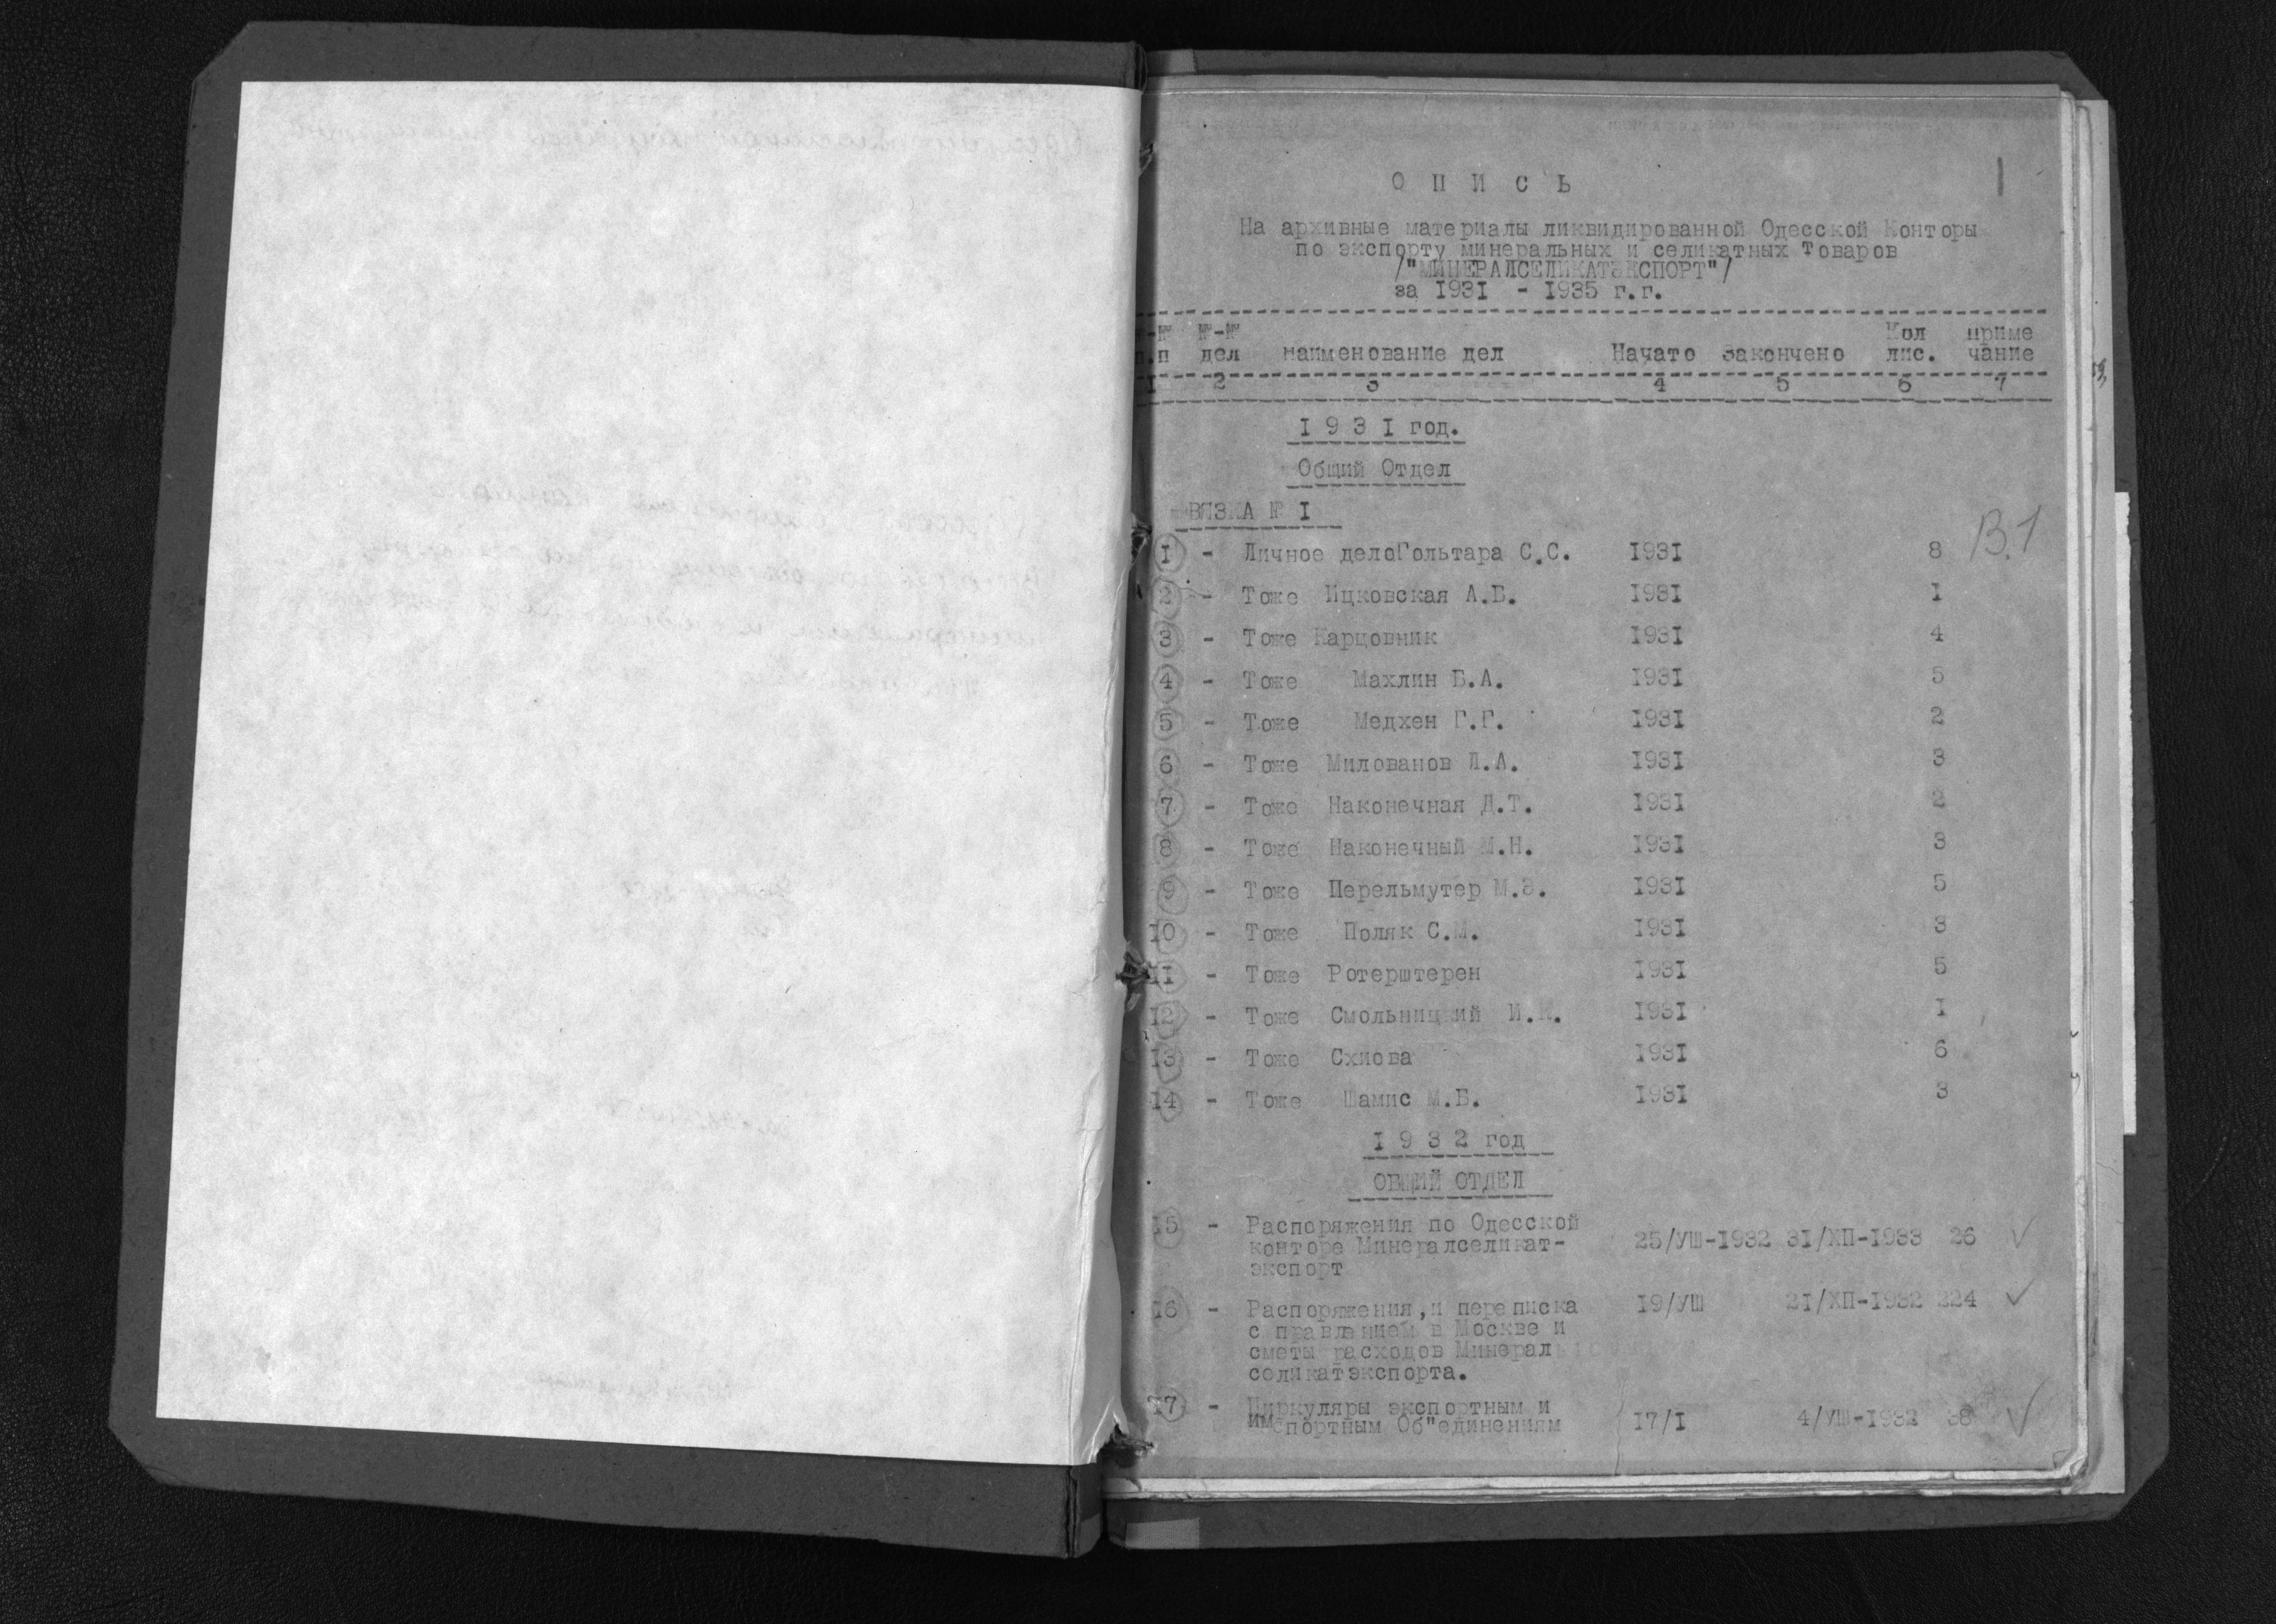 1
О П И С Ь
На архивные материалы ликвидированной Одесской Конторы
по экспорту минеральных и селикатных товаров
/"МИНЕРАЛСЕЛИКАТЭКСПОРТ"/
за 1931 - 1935 г.г.
№-№ №-№ Кол приме
п.п дел наименование дел Начато Закончено лис. чание
1 2 3 4 5 6 7
1 9 3 1 год.
Общий Отдел
ВЯЗКА № 1
В.1
1 - Личное дело Гольтара С.С. 1931 8
2 - Тоже Ицковская А.Б. 1931 1
3 - Тоже Карцовник 1931 4
4 - Тоже Махлин Б.А. 1931 5
5 - Тоже Медхен Г.Г. 1931 2
6 - Тоже Милованов Л.А. 1931 3
7 - Тоже Наконечная Д.Т. 1931 2
8 - Тоже Наконечный М.Н. 1931 3
9 - Тоже Перельмутер М.З. 1931 5
10 - Тоже Поляк С.М. 1931 3
11 - Тоже Ротерштерен 1931 5
12 - Тоже Смольницкий И. 1931 1
13 - Тоже Схиова 1931 6
14 - Тоже Шамис М.Б. 1931 3
1 9 3 2 год
ОБЩИЙ ОТДЕЛ
15 - Распоряжения по Одесской
конторе Минералселикат- 25/УШ-1932 31/ХП-1933 26
экспорт
16 - Распоряжения,и переписка 19/УШ 21/ХП-1932 224
с правлением в Москве и
сметы расходов Минерал
селикатэкспорта.
17 - Циркуляры экспортным и
импортным Об"единениям 17/1 4/УШ-1932 38